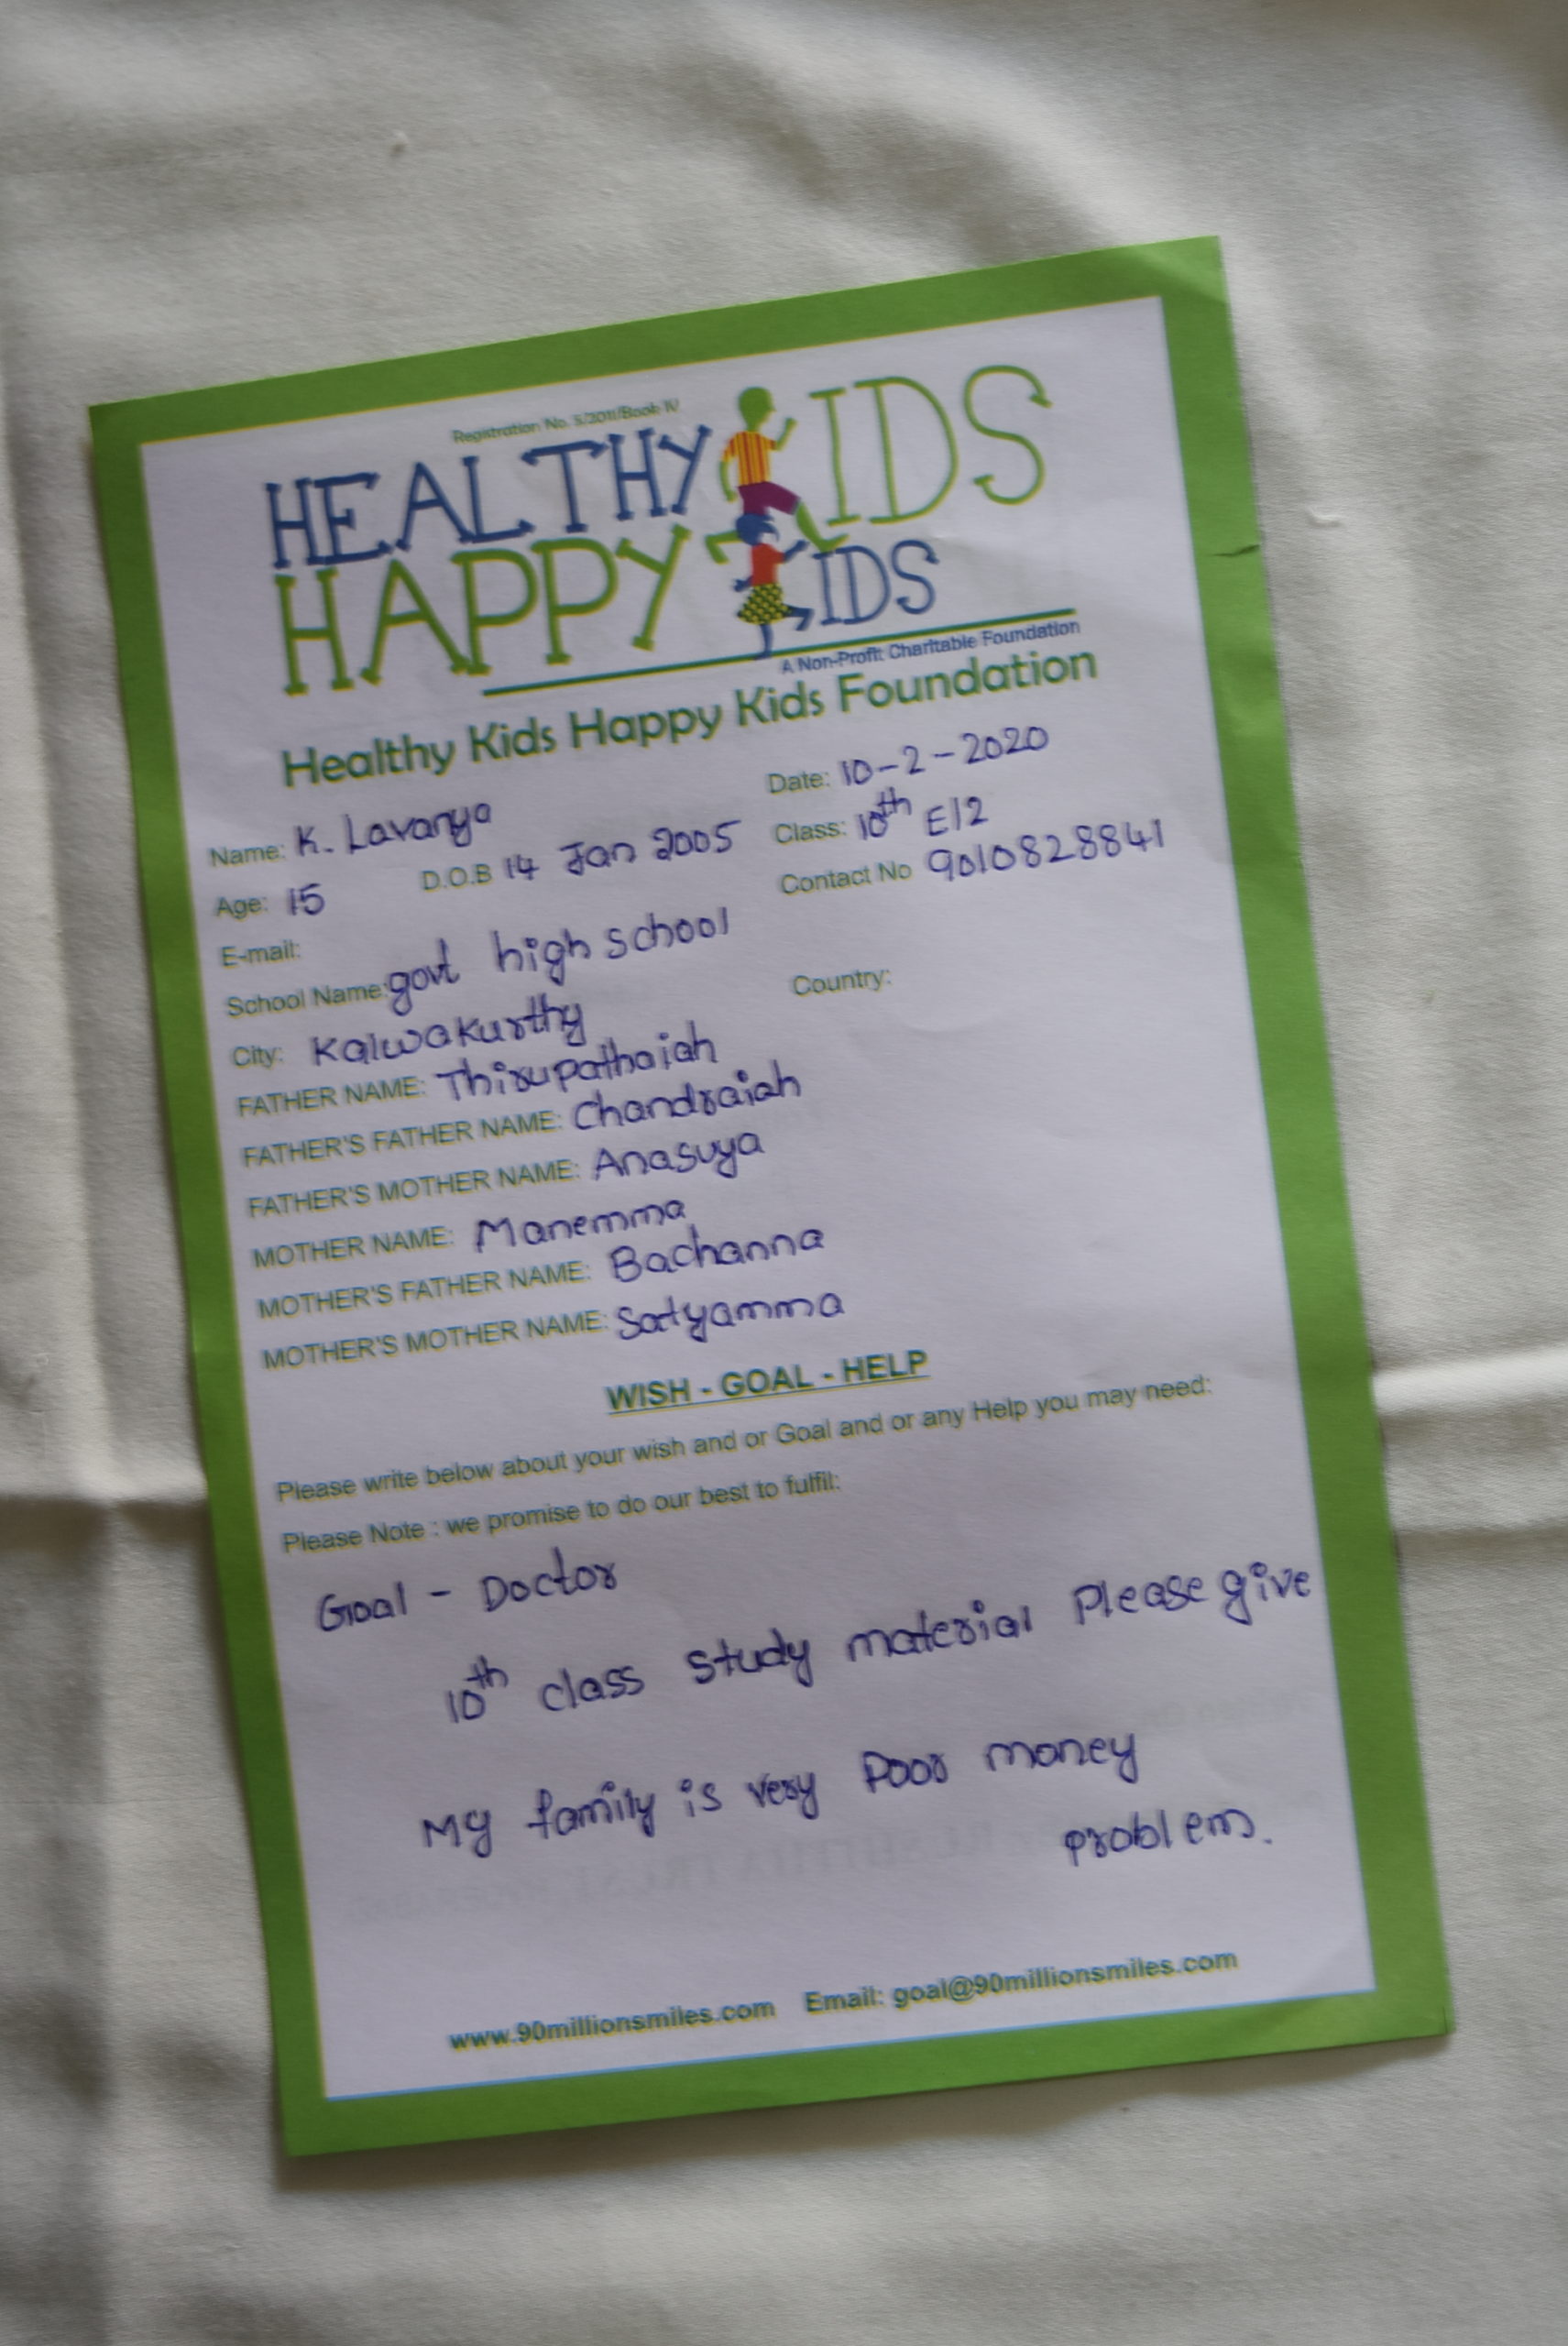 Registration No. 5/2011/Book IV
HEALTHY KIDS
HAPPY KIDS
A Non-Profit Charitable Foundation
Healthy Kids Happy Kids Foundation
Date: 10-2-2020
Name: K. Lavanya
Class: 10th E/2
Age: 15 D.O.B 14 Jan 2005
Contact No 9010828841
E-mail:
School Name: govt high school
City: Kalwakurthy Country:
FATHER NAME: Thirupathaiah
FATHER'S FATHER NAME: Chandraiah
FATHER'S MOTHER NAME: Anasuya
MOTHER NAME: Manemma
MOTHER'S FATHER NAME: Bachanna
MOTHER'S MOTHER NAME: Satyamma
WISH - GOAL - HELP
Please write below about your wish and or Goal and or any Help you may need:
Please Note : we promise to do our best to fulfil:
Goal - Doctor
10th class study material Please give
My family is very Poor money
problem.
www.90millionsmiles.com Email: goal@90millionsmiles.com